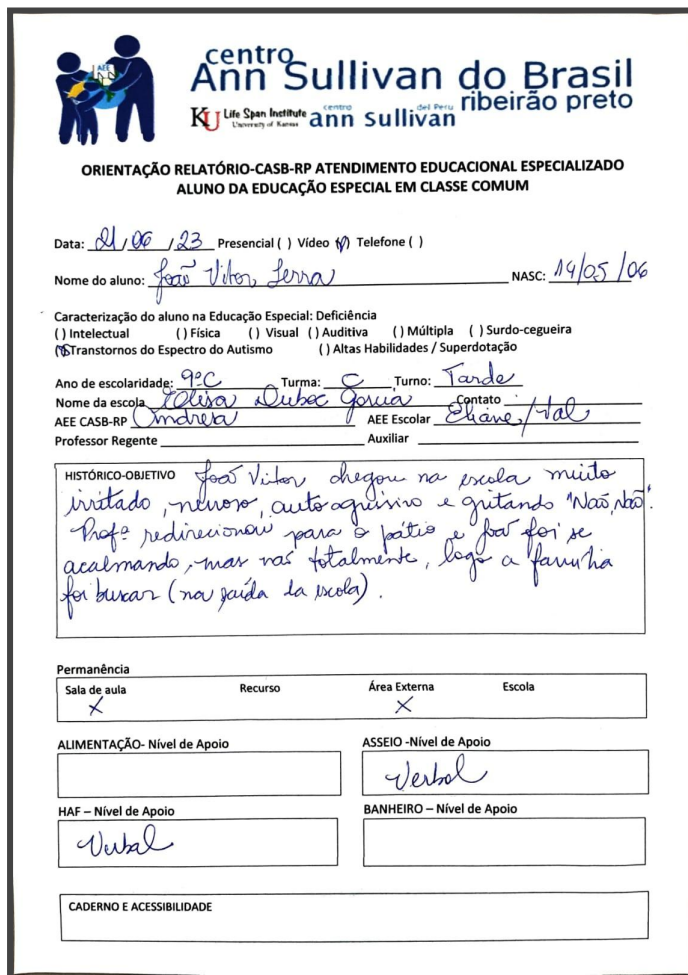 AEE
centro
Ann Sullivan do Brasil
ribeirão preto
KU Life Span Institute
University of Kansas
centro del Peru
ann sullivan
ORIENTAÇÃO RELATÓRIO-CASB-RP ATENDIMENTO EDUCACIONAL ESPECIALIZADO
ALUNO DA EDUCAÇÃO ESPECIAL EM CLASSE COMUM
Data: 21/06/23 Presencial ( ) Vídeo (X) Telefone ( )
Nome do aluno: João Vitor Serra NASC: 14/05/06
Caracterização do aluno na Educação Especial: Deficiência
( ) Intelectual ( ) Física ( ) Visual ( ) Auditiva ( ) Múltipla ( ) Surdo-cegueira
(X) Transtornos do Espectro do Autismo ( ) Altas Habilidades / Superdotação
Ano de escolaridade: 9ºC Turma: C Turno: Tarde
Nome da escola Elisa Duboc Garcia Contato
AEE CASB-RP Andreza AEE Escolar Eliane/Val
Professor Regente Auxiliar
HISTÓRICO-OBJETIVO João Vitor chegou na escola muito
irritado, nervoso, auto agressivo e gritando "Não, Não".
Profª redirecionou para o pátio e João foi se
acalmando, mas não totalmente, logo a família
foi buscar (na saída da escola).
Permanência
Sala de aula Recurso Área Externa Escola
X X
ALIMENTAÇÃO- Nível de Apoio ASSEIO -Nível de Apoio
Verbal
HAF – Nível de Apoio BANHEIRO – Nível de Apoio
Verbal
CADERNO E ACESSIBILIDADE